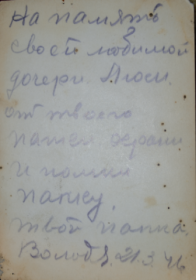 На память
своей любимой
дочери Люси
от твоего
папки. храни
и помни
папку.
твой папка
Володя 21 3 46